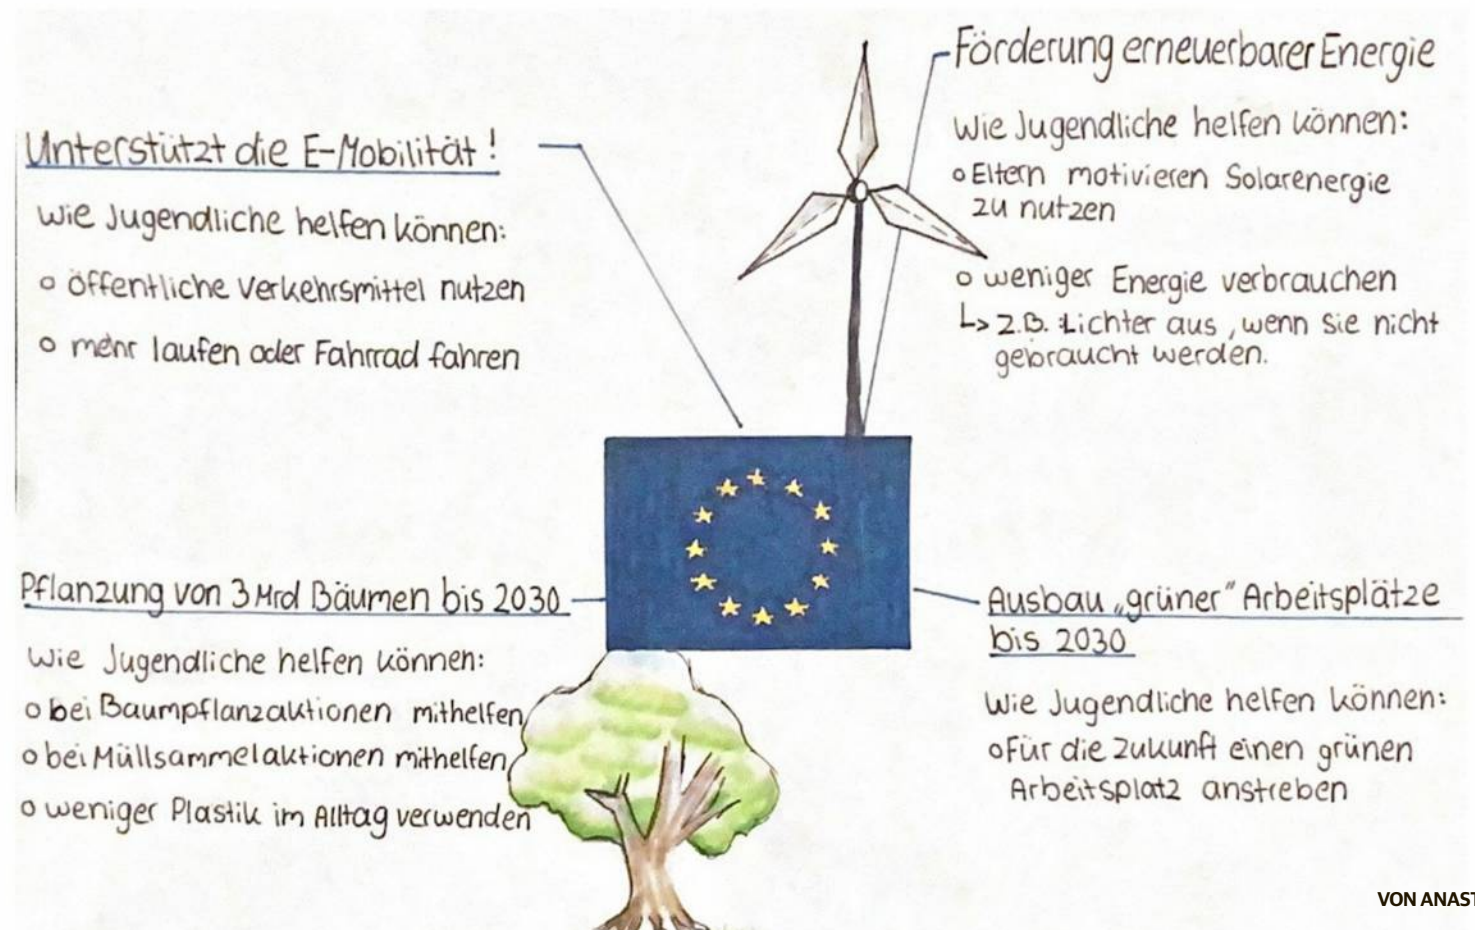 Unterstützt die E-Mobilität!
Wie Jugendliche helfen können:
o öffentliche Verkehrsmittel nutzen
o mehr laufen oder Fahrrad fahren
Förderung erneuerbarer Energie
Wie Jugendliche helfen können:
o Eltern motivieren Solarenergie
zu nutzen
o weniger Energie verbrauchen
↳ z.B. Lichter aus, wenn sie nicht
gebraucht werden.
Pflanzung von 3 Mrd Bäumen bis 2030
Wie Jugendliche helfen können:
o bei Baumpflanzaktionen mithelfen
o bei Müllsammelaktionen mithelfen
o weniger Plastik im Alltag verwenden
Ausbau „grüner" Arbeitsplätze
bis 2030
Wie Jugendliche helfen können:
o Für die Zukunft einen grünen
Arbeitsplatz anstreben
VON ANAST